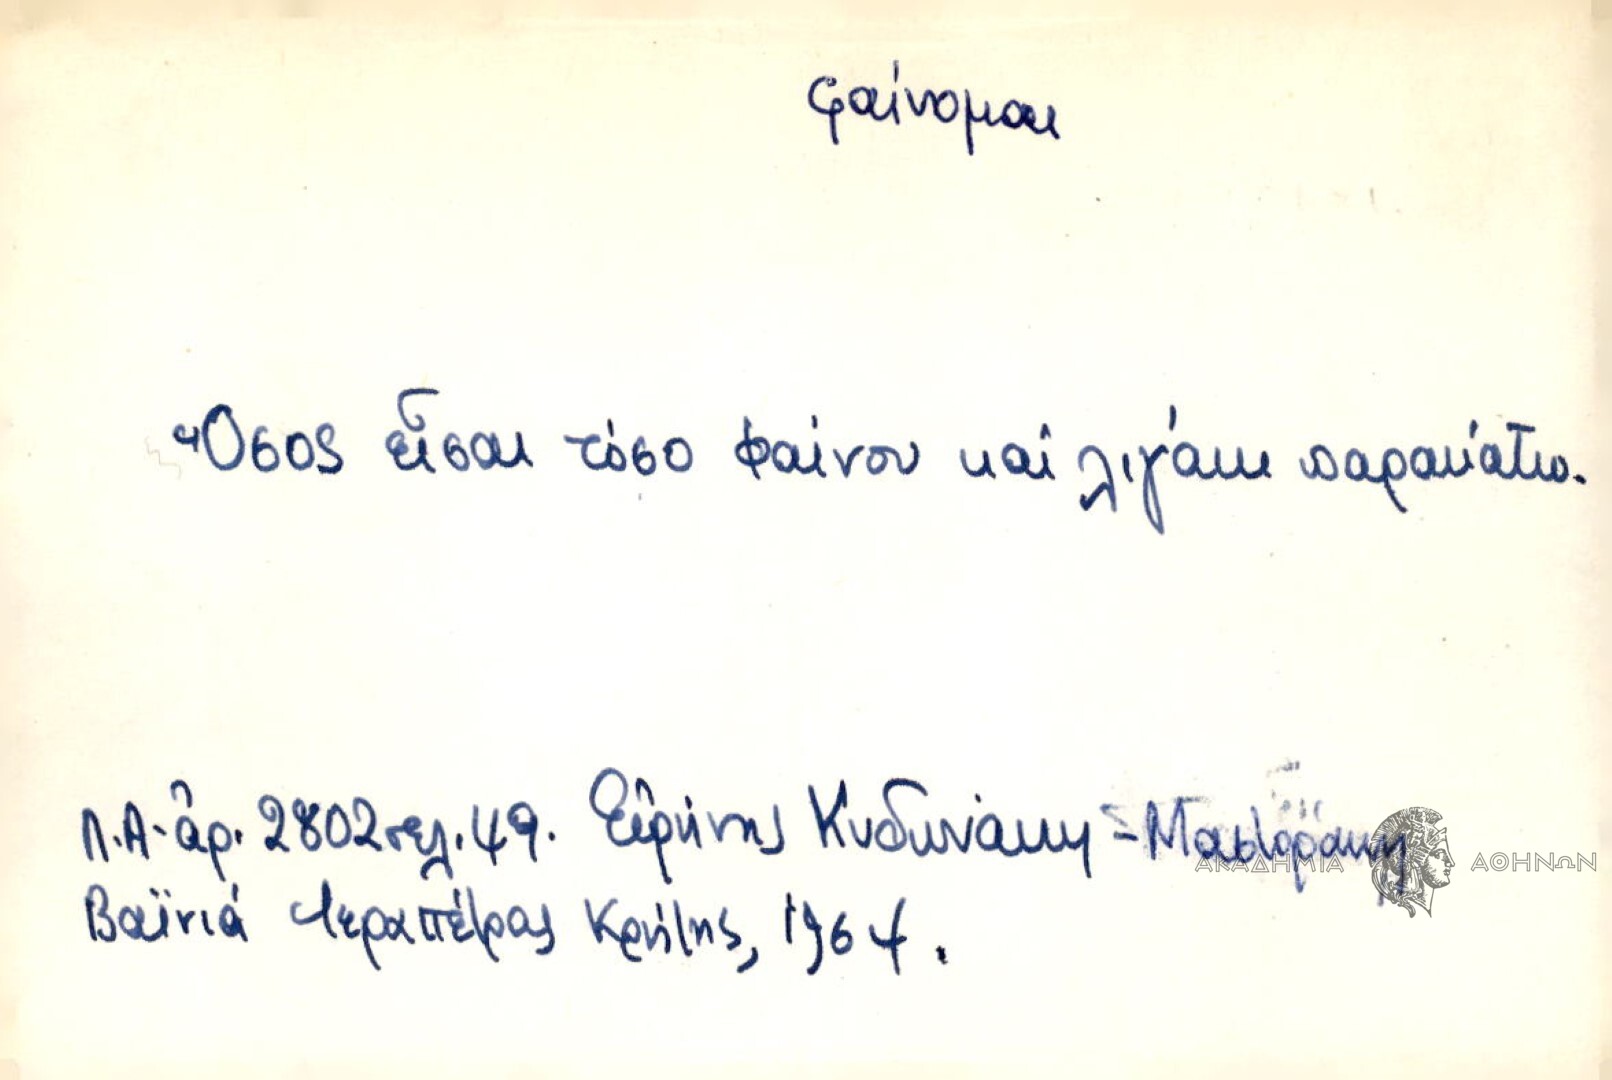 φαίνομαι
Ὅσος εἶσαι τόσο φαίνου καὶ λιγάκι παρακάτω.
Λ.Α. ἀρ. 2802 σελ. 49. Εἰρήνης Κυδωνάκη - Μαστοράκη
Βαϊνιά Ἱεραπέτρας Κρήτης, 1964.
ΑΚΑΔΗΜΙΑ ΑΘΗΝΩΝ